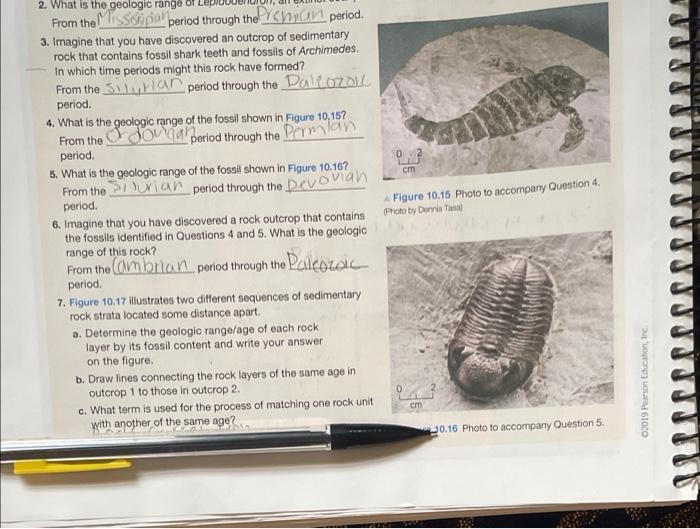 2. What is the geologic range of Lepidodendron, an extinct
From the Missippian period through the Premian period.
3. Imagine that you have discovered an outcrop of sedimentary
rock that contains fossil shark teeth and fossils of Archimedes.
In which time periods might this rock have formed?
From the Silurian period through the Paleozoic
period.
4. What is the geologic range of the fossil shown in Figure 10.15?
From the Ordovician period through the Permian
period.
5. What is the geologic range of the fossil shown in Figure 10.16?
From the Silurian period through the Devovian
period.
6. Imagine that you have discovered a rock outcrop that contains
the fossils identified in Questions 4 and 5. What is the geologic
range of this rock?
From the Cambrian period through the Paleozoic
period.
7. Figure 10.17 illustrates two different sequences of sedimentary
rock strata located some distance apart.
a. Determine the geologic range/age of each rock
layer by its fossil content and write your answer
on the figure.
b. Draw lines connecting the rock layers of the same age in
outcrop 1 to those in outcrop 2.
c. What term is used for the process of matching one rock unit
with another of the same age?
0 2
cm
▲ Figure 10.15 Photo to accompany Question 4.
(Photo by Dennis Tasa)
0 2
cm
10.16 Photo to accompany Question 5.
©2019 Pearson Education, Inc.